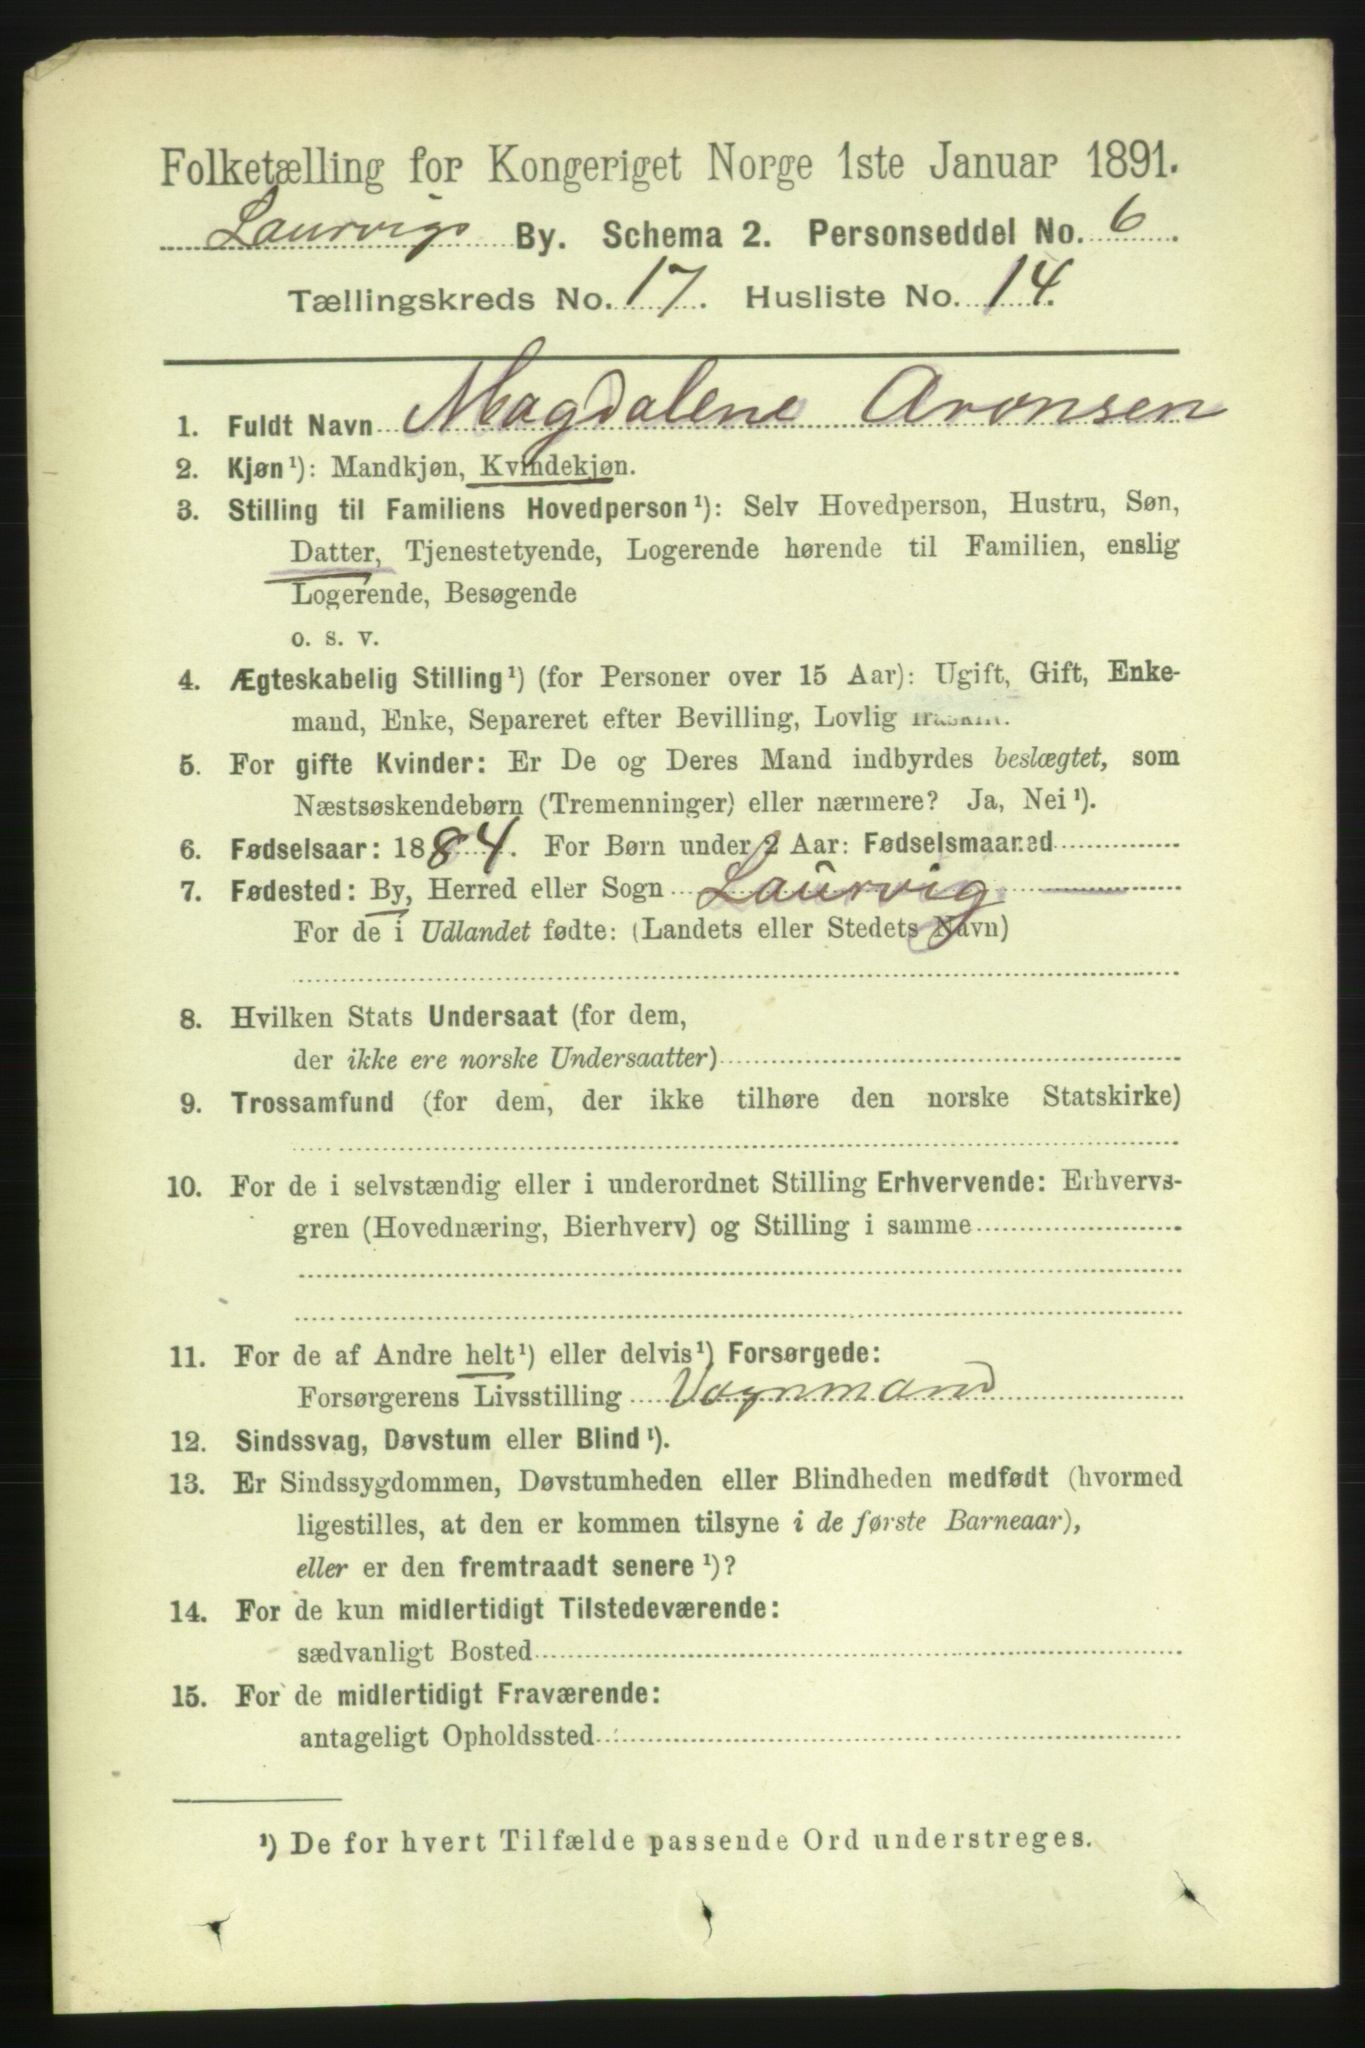 Folketælling for Kongeriget Norge 1ste Januar 1891.
Laurvigs By. Schema 2. Personseddel No. 6.
Tællingskreds No. 17. Husliste No. 14.
1. Fuldt Navn Magdalene Aronsen
2. Kjøn¹): Mandkjøn, Kvindekjøn.
3. Stilling til Familiens Hovedperson¹): Selv Hovedperson, Hustru, Søn,
Datter, Tjenestetyende, Logerende hørende til Familien, enslig
Logerende, Besøgende
o. s. v.
4. Ægteskabelig Stilling¹) (for Personer over 15 Aar): Ugift, Gift, Enke-
mand, Enke, Separeret efter Bevilling, Lovlig fraskilt.
5. For gifte Kvinder: Er De og Deres Mand indbyrdes beslægtet, som
Næstsøskendebørn (Tremenninger) eller nærmere? Ja, Nei¹).
6. Fødselsaar: 1884. For Børn under 2 Aar: Fødselsmaaned
7. Fødested: By, Herred eller Sogn Laurvig
For de i Udlandet fødte: (Landets eller Stedets Navn)
8. Hvilken Stats Undersaat (for dem,
der ikke ere norske Undersaatter)
9. Trossamfund (for dem, der ikke tilhøre den norske Statskirke)
10. For de i selvstændig eller i underordnet Stilling Erhvervende: Erhvervs-
gren (Hovednæring, Bierhverv) og Stilling i samme
11. For de af Andre helt¹) eller delvis¹) Forsørgede:
Forsørgerens Livsstilling Vognmand
12. Sindssvag, Døvstum eller Blind¹).
13. Er Sindssygdommen, Døvstumheden eller Blindheden medfødt (hvormed
ligestilles, at den er kommen tilsyne i de første Barneaar),
eller er den fremtraadt senere¹)?
14. For de kun midlertidigt Tilstedeværende:
sædvanligt Bosted
15. For de midlertidigt Fraværende:
antageligt Opholdssted
¹) De for hvert Tilfælde passende Ord understreges.